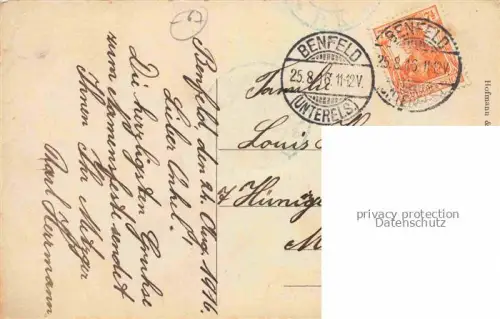 Benfeld, den 24. Aug. 1916.
Lieber Onkel!
Die herzligsten Grühse
zum Namensfeste sendet
Ihnen Ihr Metzger
Karl Heurmann.
BENFELD
25.8.16.11-12V.
(UNTERELS.)
BENFELD
25.8.16.11-12V.
Familie
Louis
Hofmann &
privacy protection
Datenschutz